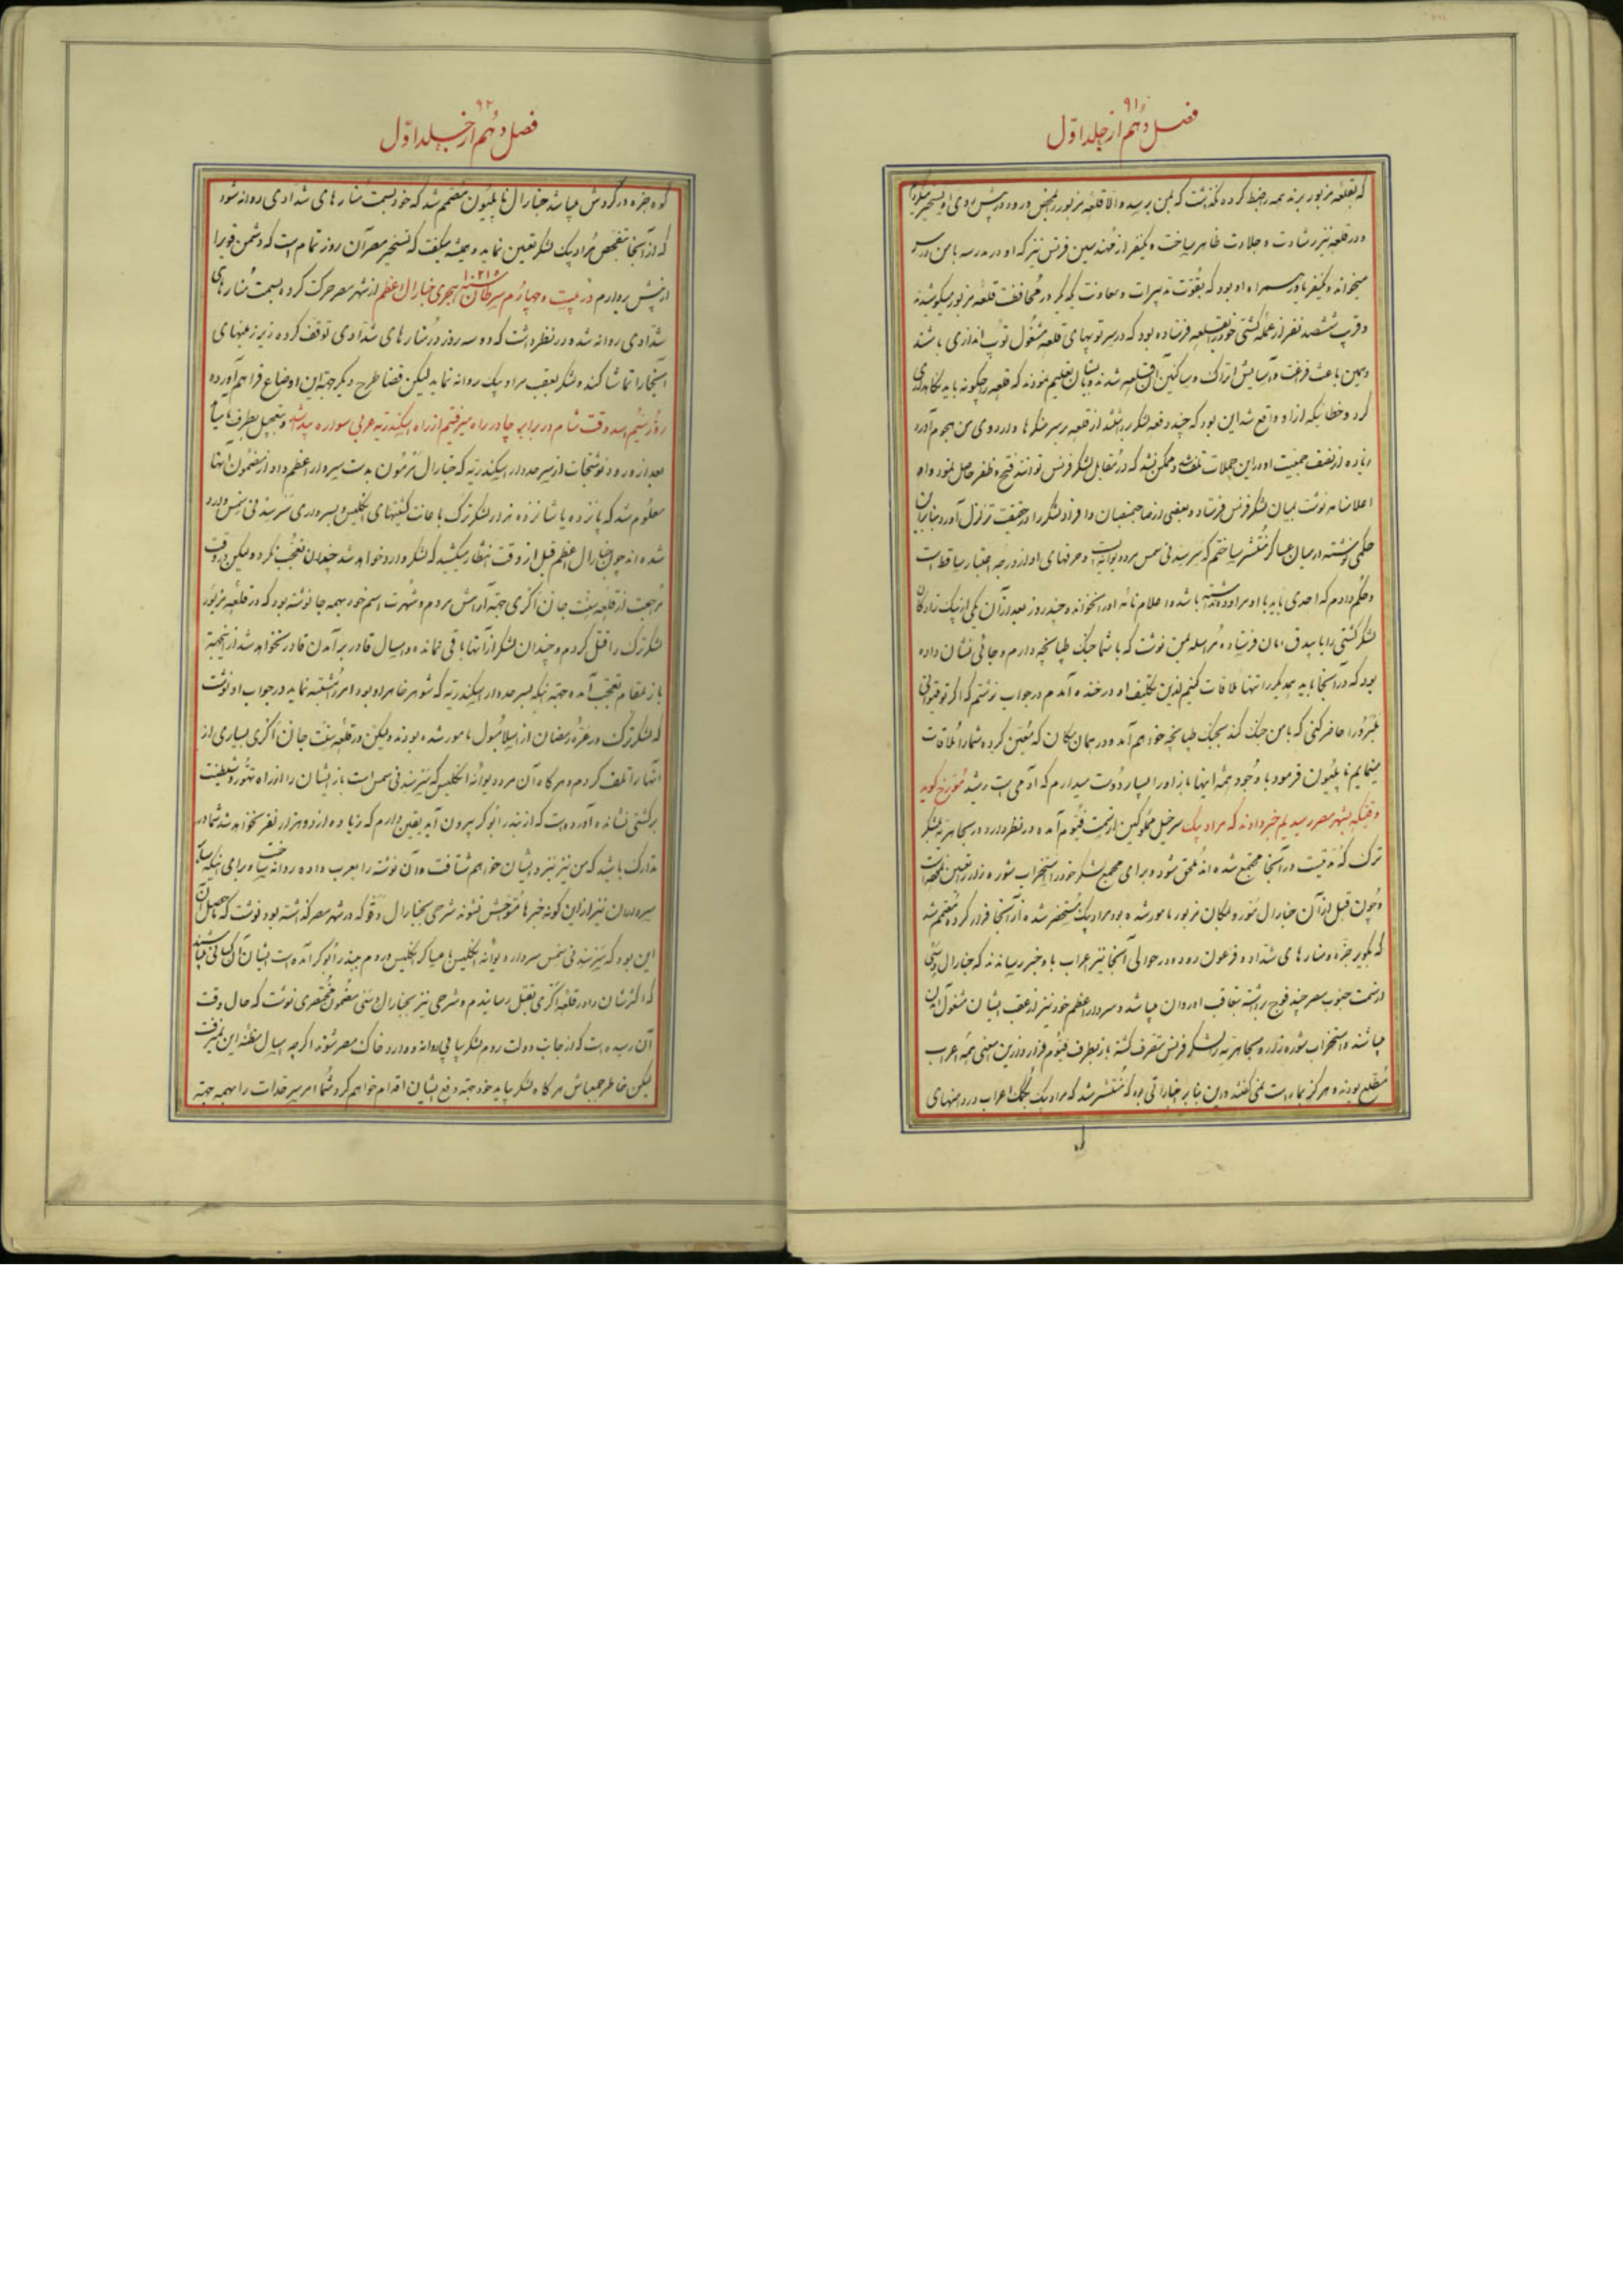 ۹۱
فصل دهم از جلد اول
که بقلعه مزبور برند همه را ضبط کرده نگذاشت که بمن برسد والا قلعه مزبور بمحض ورود در پیش روی او تسخیر میکردم
و در قلعه نیز رشادت و جلادت ظاهر ساخت و یکنفر از مهندسین فرنس نیز که او در مدرسه با من درس
میخوانده و یکنفر یاور همراه او بود که بقوت تدبیرات و معاونت یکدیگر در محافظت قلعه مزبور میکوشیدند
و قریب ششصد نفر از عمله کشتی خود بقلعه فرستاده بود که در سر توپهای قلعه مشغول توپ اندازی باشند
و همین باعث فراغت و آسایش اتراک و ساکنین آن قلعه شدند و بایشان تعلیم نمودند که قلعه را چگونه باید نگاهداری
کرد و خطائیکه از او واقع شد این بود که چند دفعه لشکر برداشته از قلعه بر سر سنکرها و اردوی من هجوم آورد
زیاده از نصف جمعیت او در این حملات تلف شد و ممکن نشد که در مقابل لشکر فرنس توانند فتح و ظفر حاصل نمود و او
اعلانامه نوشت بمیان لشکر فرنس فرستاد و بعضی از صاحبمنصبان و افراد لشکر را در حقیقت تزلزل آورد بنابران
حکمی نوشته در میان عساکر منتشر ساختم که سر سدنی سمس مرده دیوانه است و حرفهای او از درجه اعتبار ساقط است
و حکم دادم که احدی نباید با او مراوده داشته باشد و اعلام نامه او را نخواند و چند روز بعد از آن یکی از نیک زادگان
لشکر کشتی را با بیدق امان فرستاده مراسله بمن نوشت که با شما جنگ طپانچه دارم و جائی نشان داده
بود که در آنجا باید یکدیگر را تنها ملاقات کنیم از این تکلیف او در خنده آمدم در جواب نوشتم که اگر تو قیتوانی
بلبرورا حاضر کنی که با من جنگ کند بجنگ طپانچه خواهم آمد و در همان مکان که معین کرده شما را ملاقات
مینمایم ناپلیون فرمود با وجود همه اینها باز او را بسیار دوست میدارم که آدمی است رشید مورخ گوید
وقتیکه بشهر مصر رسیدیم خبر دادند که مراد بیک سر خیل مملوکین از سمت فیوم آمده در نظر دارد در سجاهریه بلشکر
ترک که مدتیست در آنجا مجتمع شده اند ملحق شود و برای مجمع لشکر خود را استخراب شوره زار را تعین نموده است
و چون قبل از آن جنارال مورو بمکان مزبور مامور شده بود مراد بیک مستحضر شده از آنجا فرار کرد و مصمم شد
که بکویر جیزه و منارهای شداد و فرعون رود و در حوالی آنجا نیز اعراب باو خبر رسانیدند که جنارال دسی
از سمت جنوب مصر چند فوج برداشته بتعاقب او روان میباشد و سردار اعظم خود نیز از عقب ایشان مشغول آمدن
میباشند و استخراب شوره زار و سجاهریه را لشکر فرنس متصرف گشته باز بطرف فیوم فرار و ازین معنی همه اعراب
مطلع بودند و هرگز بما راست نمی گفتند و این بنابر خباراتی بود که منتشر شد که مراد بیک بکمک اعراب در دامنهای
۹۲
فصل دهم از جلد اول
کوه جیزه در گردش میباشد جنارال ناپلیون مصمم شد که خود بسمت منارهای شدادی روانه شود
که از آنجا بتفحص مراد بیک لشکر تعین نماید و همیشه میگفت که تسخیر مصر آن روز تمام است که دشمن قوی را
از پیش بردارم در بیست و چهارم سرطان سنه ۱۲۱۵ هجری جنارال اعظم از شهر مصر حرکت کرده بسمت منارهای
شدادی روانه شد و در نظر داشت که دو سه روز در منارهای شدادی توقف کرده زیر زمینهای
آنجا را تماشا کند و لشکر بعقب مراد بیک روانه نماید لیکن قضا طرح دیگر جهة این اوضاع فراهم آورده
روز بیستم اسد وقت شام در برابر چادر راه میرفتیم از راه اسکندریه عربی سواره پیدا شد و بتعجیل بطرف ما میآمد
بعد از ورود نوشتجات از سرحددار اسکندریه که جنارال مرمون بدست سردار اعظم داد از مضمون آنها
معلوم شد که پانزده یا شانزده هزار لشکر ترک باعانت کشتیهای انگلیس و بسرداری سر سدنی سمس وارد
شده اند چون جنارال اعظم قبل از وقت انتظار میکشید که لشکر وارد خواهد شد چندان تعجب نکرد و لیکن در وقت
مرجعت از قلعه سنت جان آگری جهة آرامش مردم و شهرت اسم خود بهمه جا نوشته بود که در قلعه مزبور
لشکر ترک را قتل کردم و چندان لشکر از آنها باقی نمانده و امسال قادر بر آمدن قادر نخواهد شد از اینجهة
باز بمقام تعجب آمده جهة اینکه بسرحددار اسکندریه که شوهر خاهر او بود امر را مشتبه نماید در جواب او نوشت
که لشکر ترک در غره رمضان از اسلامبول مامور شده بودند و لیکن در قلعه سنت جان آگری بسیاری از
آنها را تلف کردم و هرگاه آن مرد دیوانه انگلیس که سر سدنی سمس است باز ایشان را از راه تهور و شیطنت
بر کشتی نشانده آورده است که از بندر ابوکر بیرون آید یقین دارم که زیاده از دو هزار نفر نخواهد شد شما در
تدارک باشید که من نیز نزد ایشان خواهم شتافت و آن نوشته را بعرب داده روانه ساخت و برای اینکه سایر
سرداران نیز از این گونه خبرها متوحش نشوند شرحی بجنارال دقو که در شهر مصر گذاشته بود نوشت که حاصل آن
این بود که سر سدنی سمس سردار دیوانه انگلیس با عساکر انگلیس و روم ببندر ابوکر آمده است ایشان آن کسانی میباشند
که اکثرشان را در قلعه آگری بقتل رساندم و شرحی نیز بجنارال دسی مضمون مختصری نوشت که حال وقت
آن رسیده است که از جانب دولت روم لشکر پیاپی روانه و وارد خاک مصر شوند اگر چه امسال مظنه این نمیرفت
لیکن خاطر جمع باش هرگاه لشکر بیاید خود جهة دفع ایشان اقدام خواهم کرد شما امر سرحدات را بهمه جهة